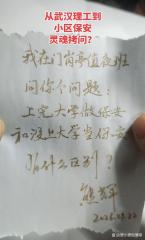 从武汉理工到
小区保安
灵魂拷问?
我在门岗亭值夜班
问你个问题:
上完大学做保安
和没上大学当保安
有什么区别?